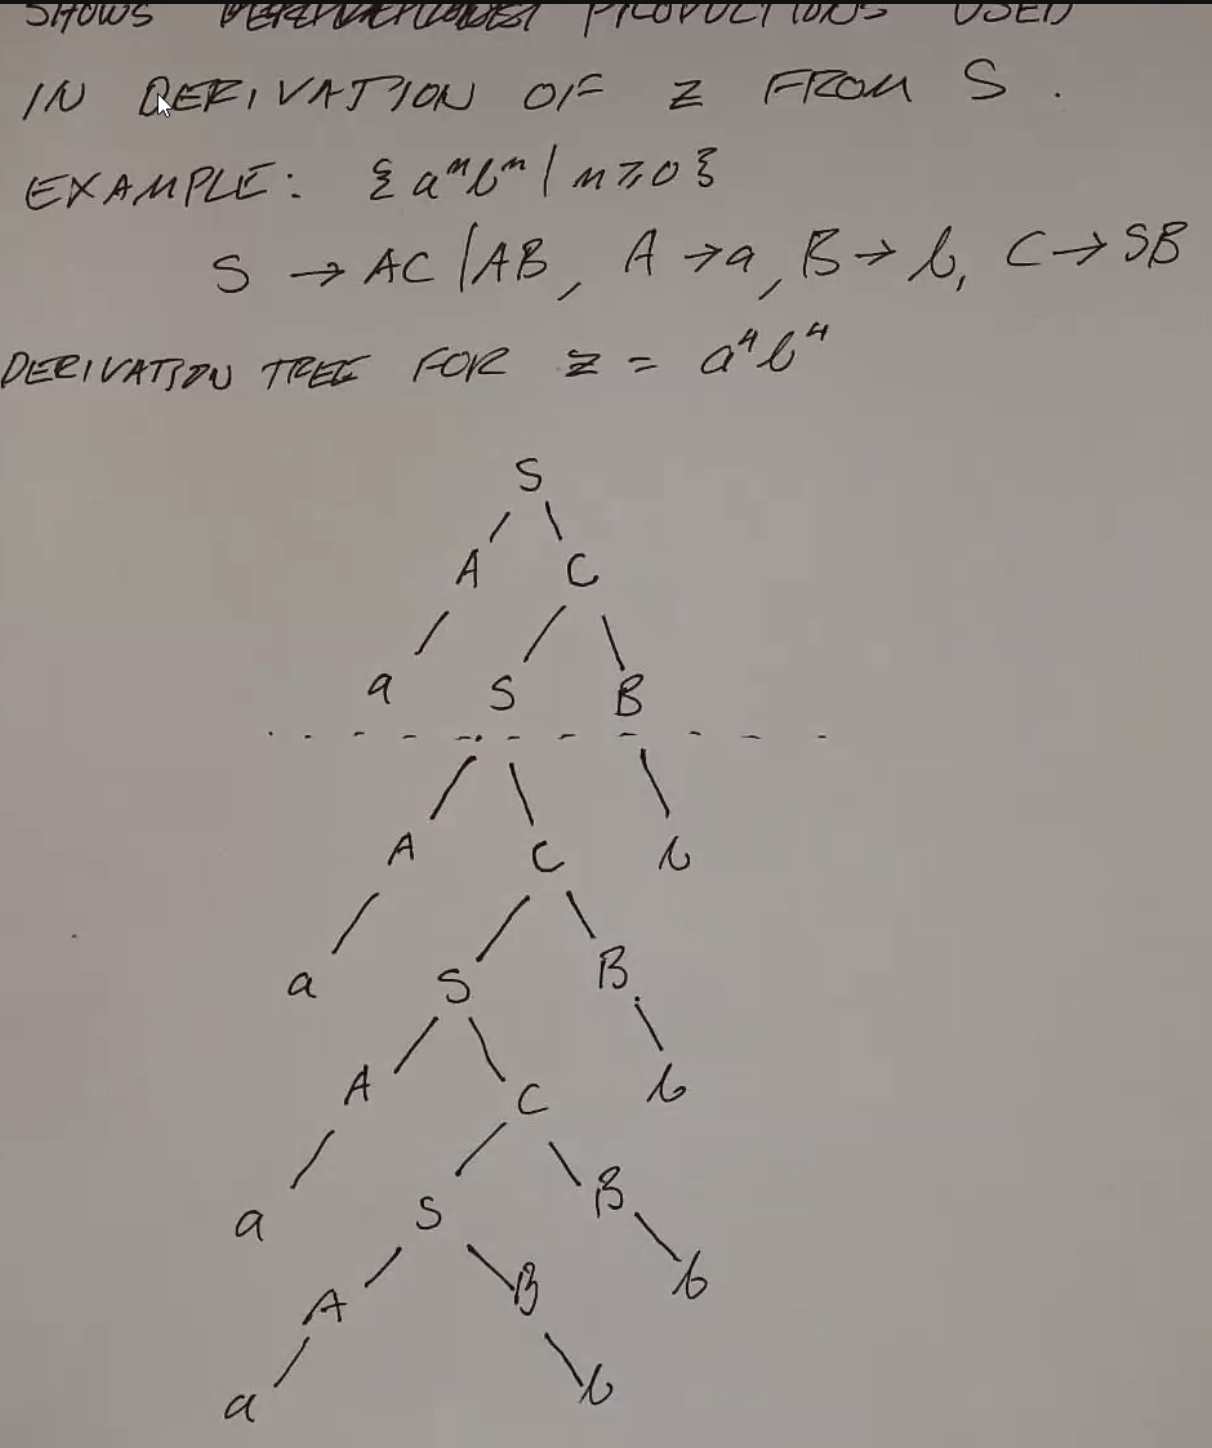 SHOWS PRODUCTIONS USED
IN DERIVATION OF z FROM S .
EXAMPLE: { aⁿbⁿ | n ⩾ 0 }
S → AC | AB, A → a, B → b, C → SB
DERIVATION TREE FOR z = a⁴b⁴
S
A C
a S B
A C b
a S B
A C b
a S B
A B b
a b